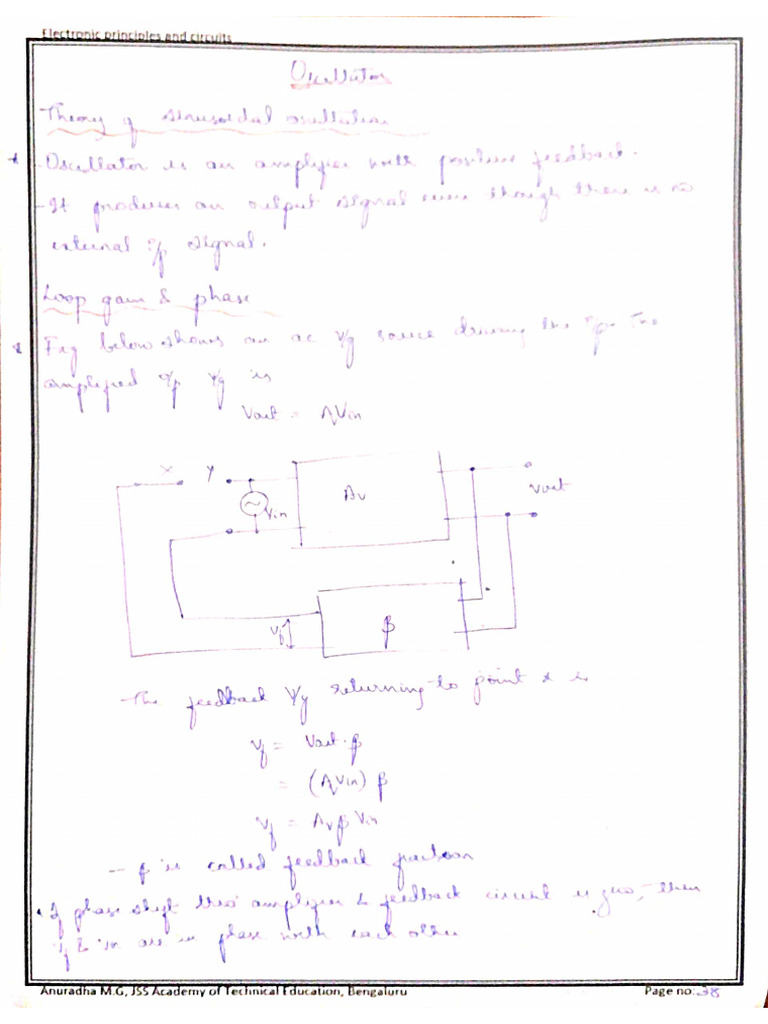 Electronic principles and circuits
Oscillator
Theory of Sinusoidal oscillation
* - Oscillator is an amplifier with positive feedback.
- It produces an output signal even though there is no
external i/p signal.
Loop gain & phase
* Fig below shows an ac V/g source driving the i/p. The
amplified o/p V/g is
Vout = AvVin
X Y
Vin
Av
Vout
Vf
β
- The feedback V/g returning to point x is
Vf = Vout·β
= (AvVin) β
Vf = Avβ Vin
- β is called feedback fraction
• If phase shift thro' amplifier & feedback circuit is zero, then
Vf & Vin are in phase with each other
Anuradha M.G, JSS Academy of Technical Education, Bengaluru
Page no: 38